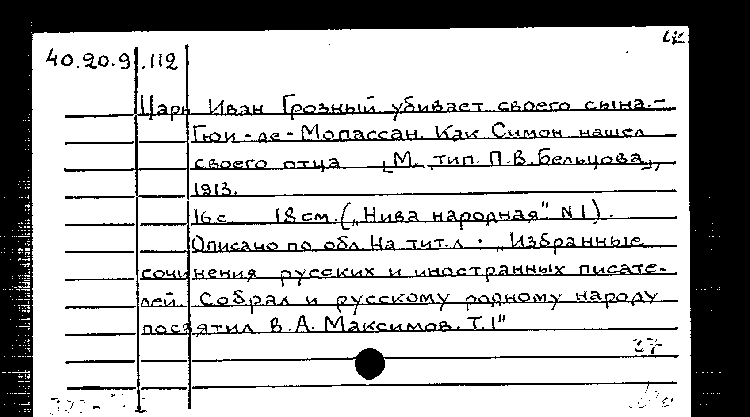 40.20.9.112
Царь Иван Грозный убивает своего сына.-
Гюи-де-Мопассан. Как Симон нашел
своего отца [М., тип. П.В. Бельцова],
1913.
16 с. 18 см. („Нива народная" N 1).
Описано по обл. На тит. л.: „Избранные
сочинения русских и иностранных писате-
лей. Собрал и русскому родному народу
посвятил В.А. Максимов. Т.1"
37